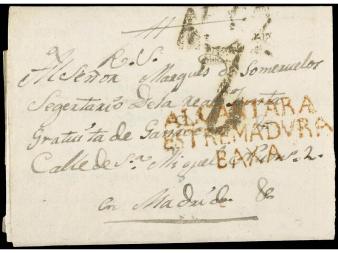 R. S.
Al Señor Marques de Someruelos
Segertario De la real Junta
Gratuita de
Calle de Sn. Miguel Num. 2.
en Madrid. &
ALCANTARA
ESTREMADVRA
BAXA.